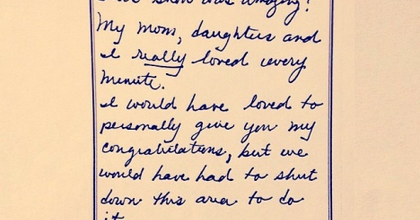 show was amazing!
My mom, daughters and
I really loved every
minute.
I would have loved to
personally give you my
congratulations, but we
would have had to shut
down this area to do
it